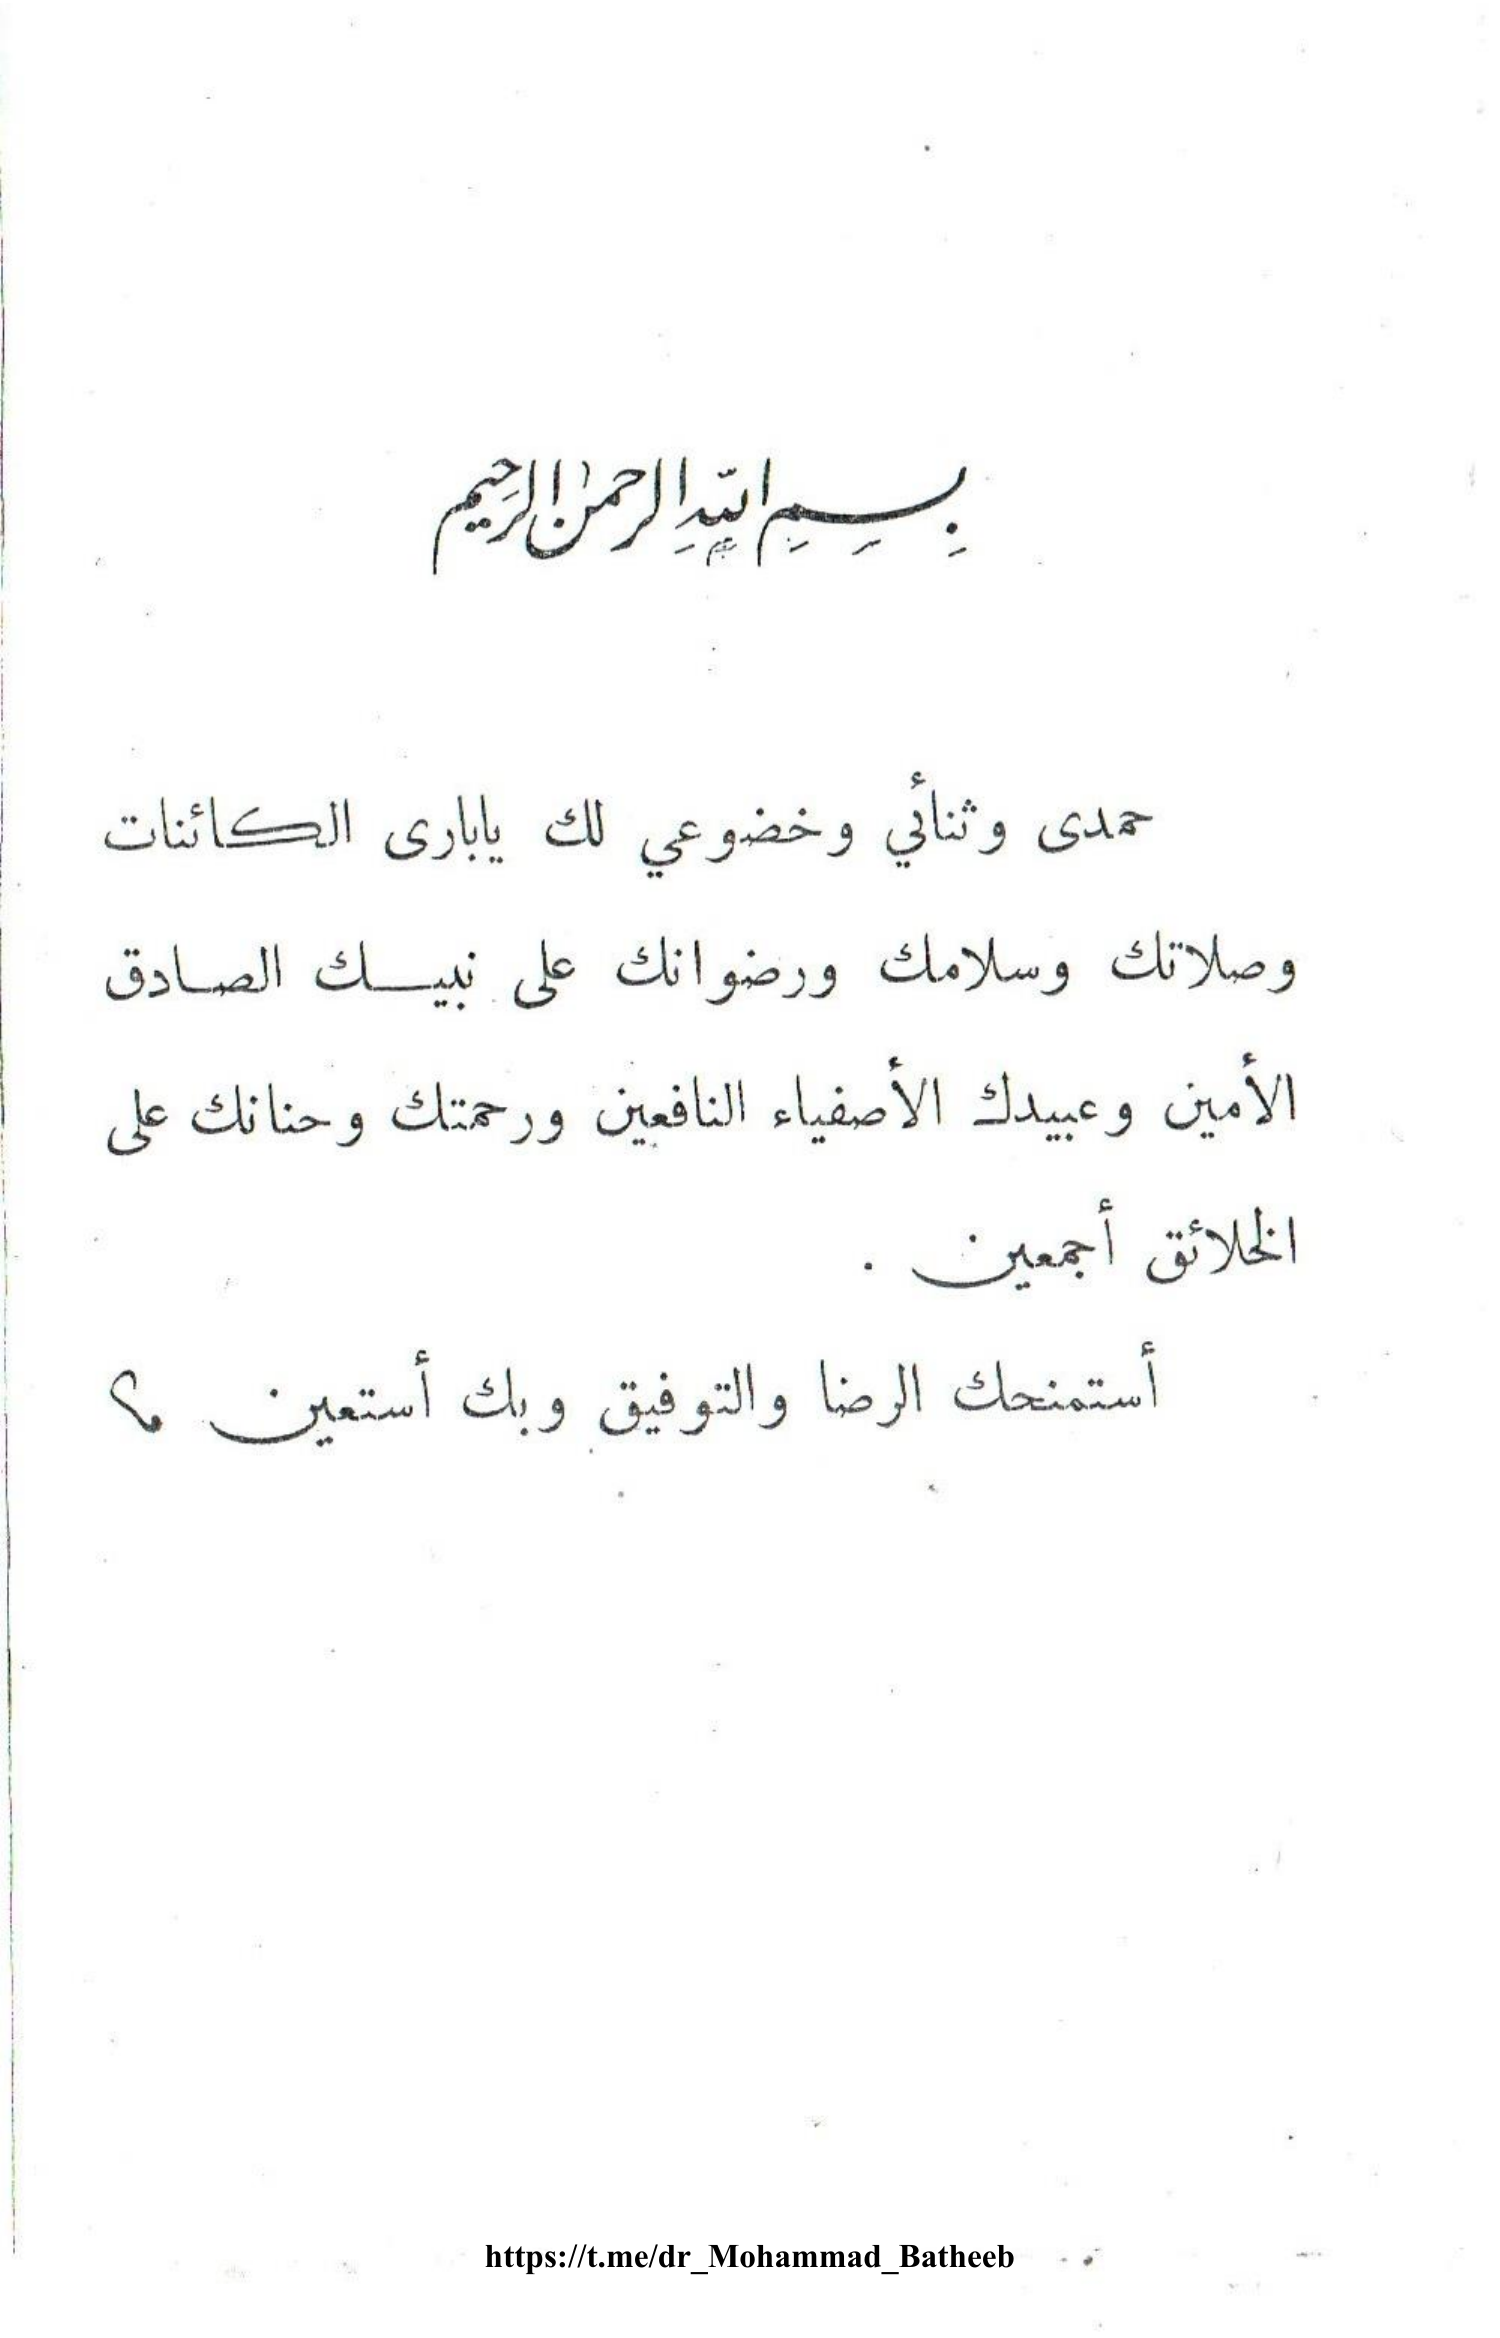 بِسِمِ اللهِ الرحمٰن الرَحيم
حمدى وثنائي وخضوعي لك يابارى الكائنات
وصلاتك وسلامك ورضوانك على نبيك الصادق
الأمين وعبيدك الأصفياء النافعين ورحمتك وحنانك على
الخلائق أجمعين .
أستمنحك الرضا والتوفيق وبك أستعين
https://t.me/dr_Mohammad_Batheeb